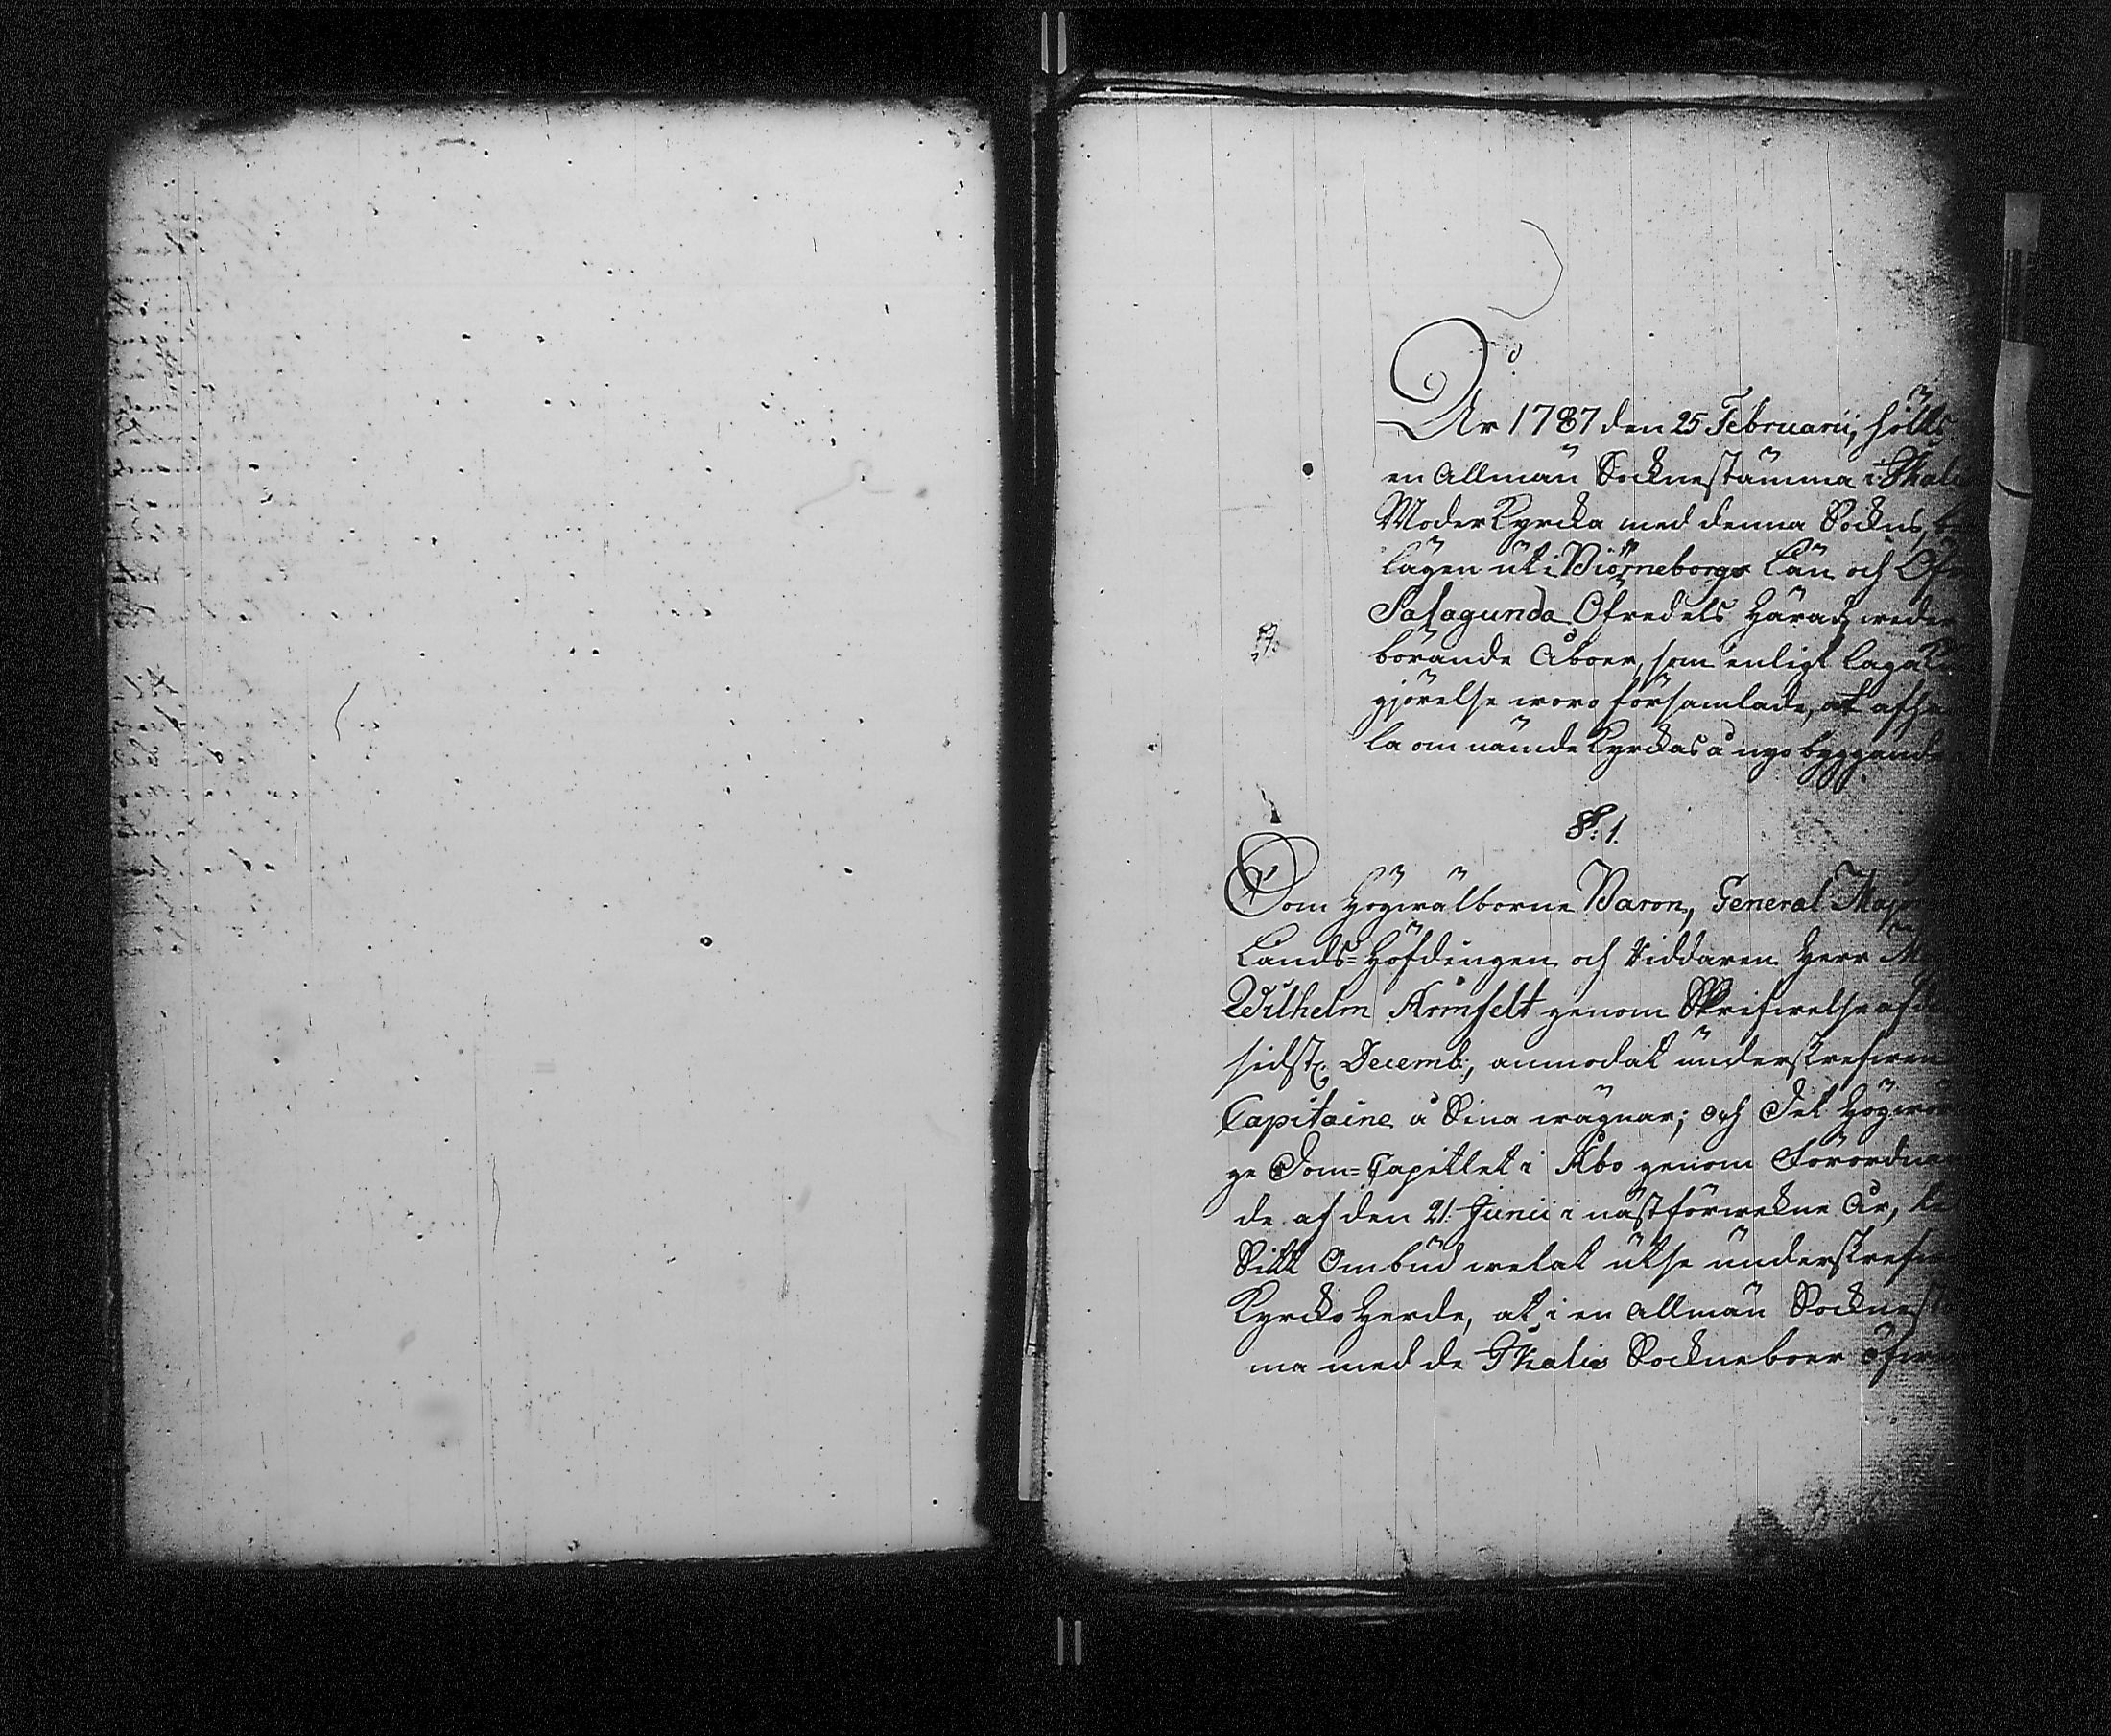 År 1787 den 25 Februarii, hölts
en Allmän Socknestämma i Ikalis
Moder Kyrcka med denna Sockns, be
lägen uti Biörneborgs Län och Öfre
Satagunda Öfredels Härad, weder
börande Åboer, som enligt laga kun
gjörelse woro församlade, at afhand
la om nämde Kyrckas å nyo byggande
§: 1.
Som Högwälborne Baron, General Majoren
Lands-Höfdingen och Riddaren Herr M
Wilhelm Armfelt genom Skrifwelse af den
sidstl. Decemb:, anmodat underskrefwen
Capitaine å Sina wägnar; och Det Högwördi
ge Dom-Capitlet i Åbo genom Förordnan
de af den 21. Junii i nästförwekne År, til
Sitt Ombud welat utse underskrefwen
Kyrcko Herde, at i en allmän Socknestäm
ma med de Ikalis Sockneboer öfwer